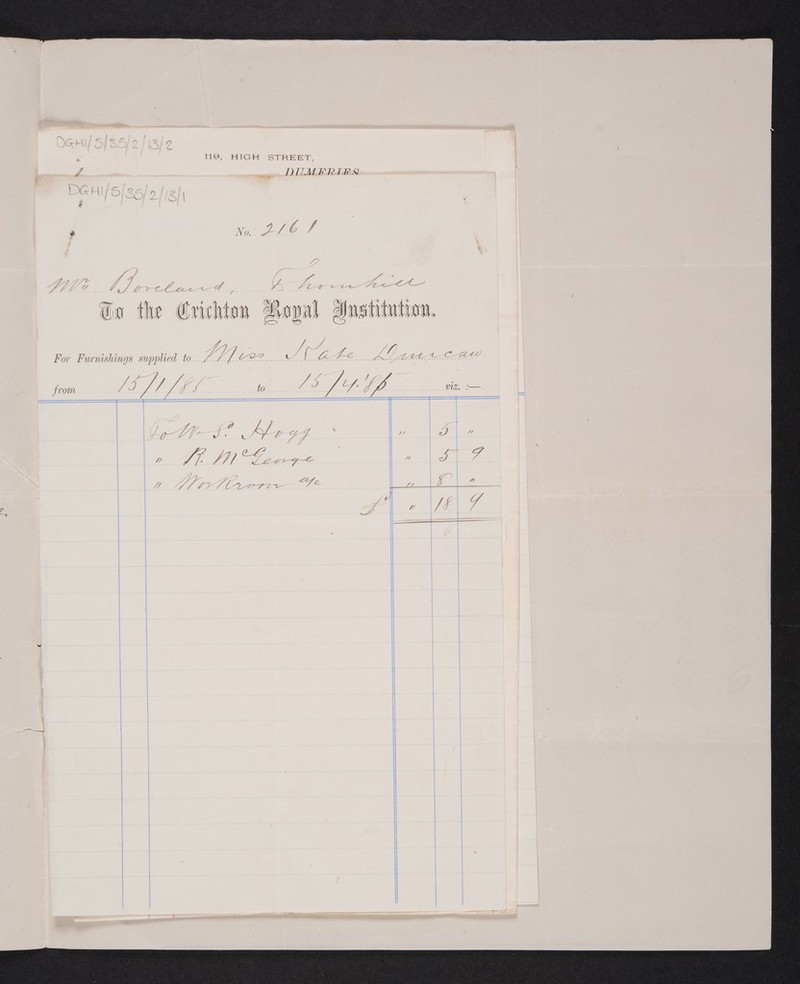 DGH1/5/35/2/13/2
119, HIGH STREET,
DUMFRIES
DGH1/5/35/2/13/1
No. 2161
Mr Boreland, Thornhill
To the Crichton Royal Institution.
For Furnishings supplied to Miss Kate Duncan
from 15/1/85 to 15/4/85 viz. :—
To W. S. Hogg " 5 "
" R. McGeorge " 5 9
" Workroom a/c " 8 "
£ " 18 9